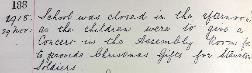 188
1918. School was closed in the afternoon
29 Nov. as the children were to give a
Concert in the Assembly Room
to provide Christmas Gifts for
Soldiers